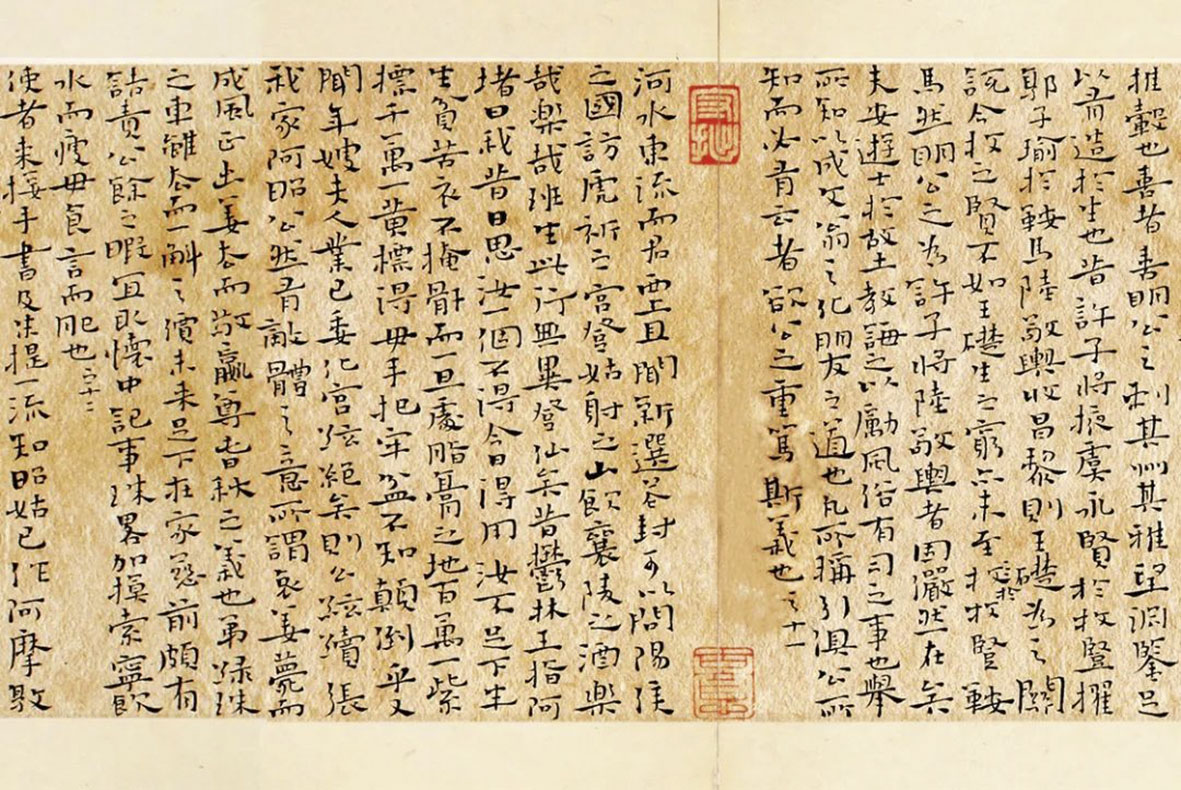 推轂也喜者喜明公之刺其州其雅望洞鑒足
以前造於生也昔許子將振虞永賢於牧豎擢
郭子瑜於鞍馬陸敬輿收昌黎則王礎為之關
說今牧之賢不如王礎生之窮亦未至於牧豎鞍
馬然明公之為許子將陸敬輿者固儼然在矣
夫安遊士於故土教誨之以勵風俗有司之事也舉
所知以成文翁之化朋友之道也凡所稱引俱公所
知而必有云者欲公之重篤斯義也 之十一
河水東流而君西上且聞新選花封可以問陽侯
之國訪虒祈之宮登姑射之山飲襄陵之酒樂
哉樂哉班生此行無異登仙矣昔鬱林王指阿
堵曰我昔日思汝一個不得今日得用汝不足下生
生貧苦衣不掩骭而一旦處脂膏之地百萬一紫
標千萬一黃標得毋手把牢盆不知顛倒乎又
聞年嫂夫人業已委化宮弦絕矣則公弦續張
我家阿昭公然有敵體之意所謂哀姜薨而
成風正出姜去而敬嬴尊春秋之義也弟綠珠
之車雖去而一斛之償未來足下在家慈前頗有
詰責公餘之暇宜取懷中記事珠略加摸索寧飲
水而瘦毋食言而肥也 之十二
使者來接手書及朱提一流知昭姑已作阿摩敢